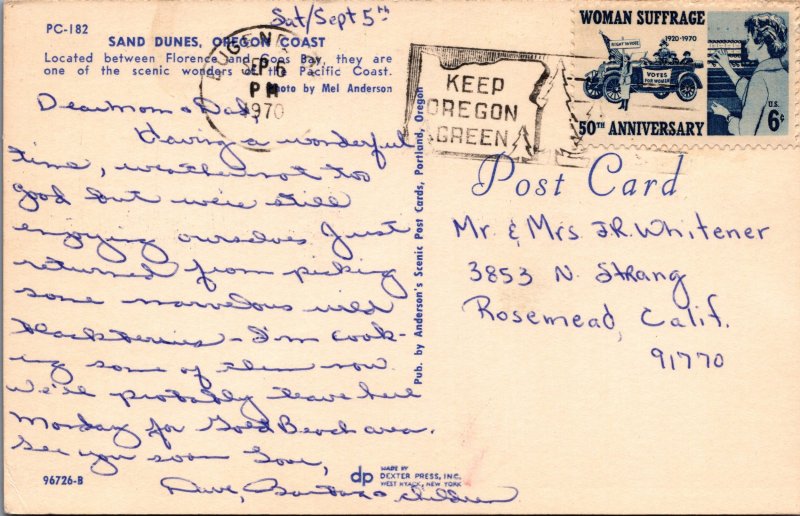 Sat/Sept 5th
PC-182
SAND DUNES, OREGON COAST
Located between Florence and Coos Bay, they are
one of the scenic wonders of the Pacific Coast.
Photo by Mel Anderson
Dear Mom & Dad,
Having a wonderful
time, weather not too
good but we're still
enjoying ourselves Just
returned from picking
some marvelous wild
blackberries - I'm cook-
ing some of them now.
We'll probably leave here
Monday for Gold Beach area.
See you soon Love,
Dave, Barbara & children
96726-B
dp MADE BY
DEXTER PRESS, INC.
WEST NYACK, NEW YORK
Pub. by Anderson's Scenic Post Cards, Portland, Oregon
PM
1970
KEEP
OREGON
GREEN
WOMAN SUFFRAGE
1920-1970
RIGHT TO VOTE
VOTES
FOR WOMEN
50TH ANNIVERSARY
U.S.
6¢
Post Card
Mr. & Mrs J.R. Whitener
3853 N. Strang
Rosemead, Calif.
91770